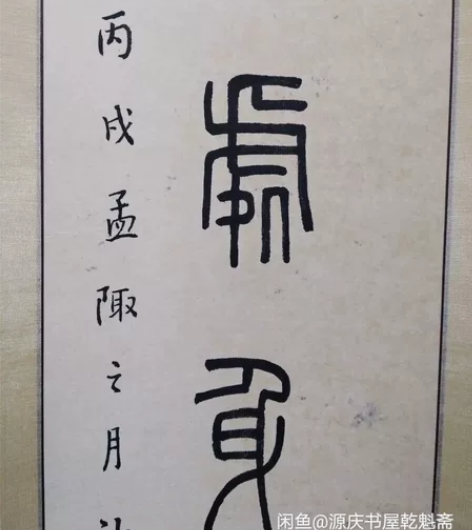 處身
丙戌孟陬之月
闲鱼@源庆书屋乾魁斋